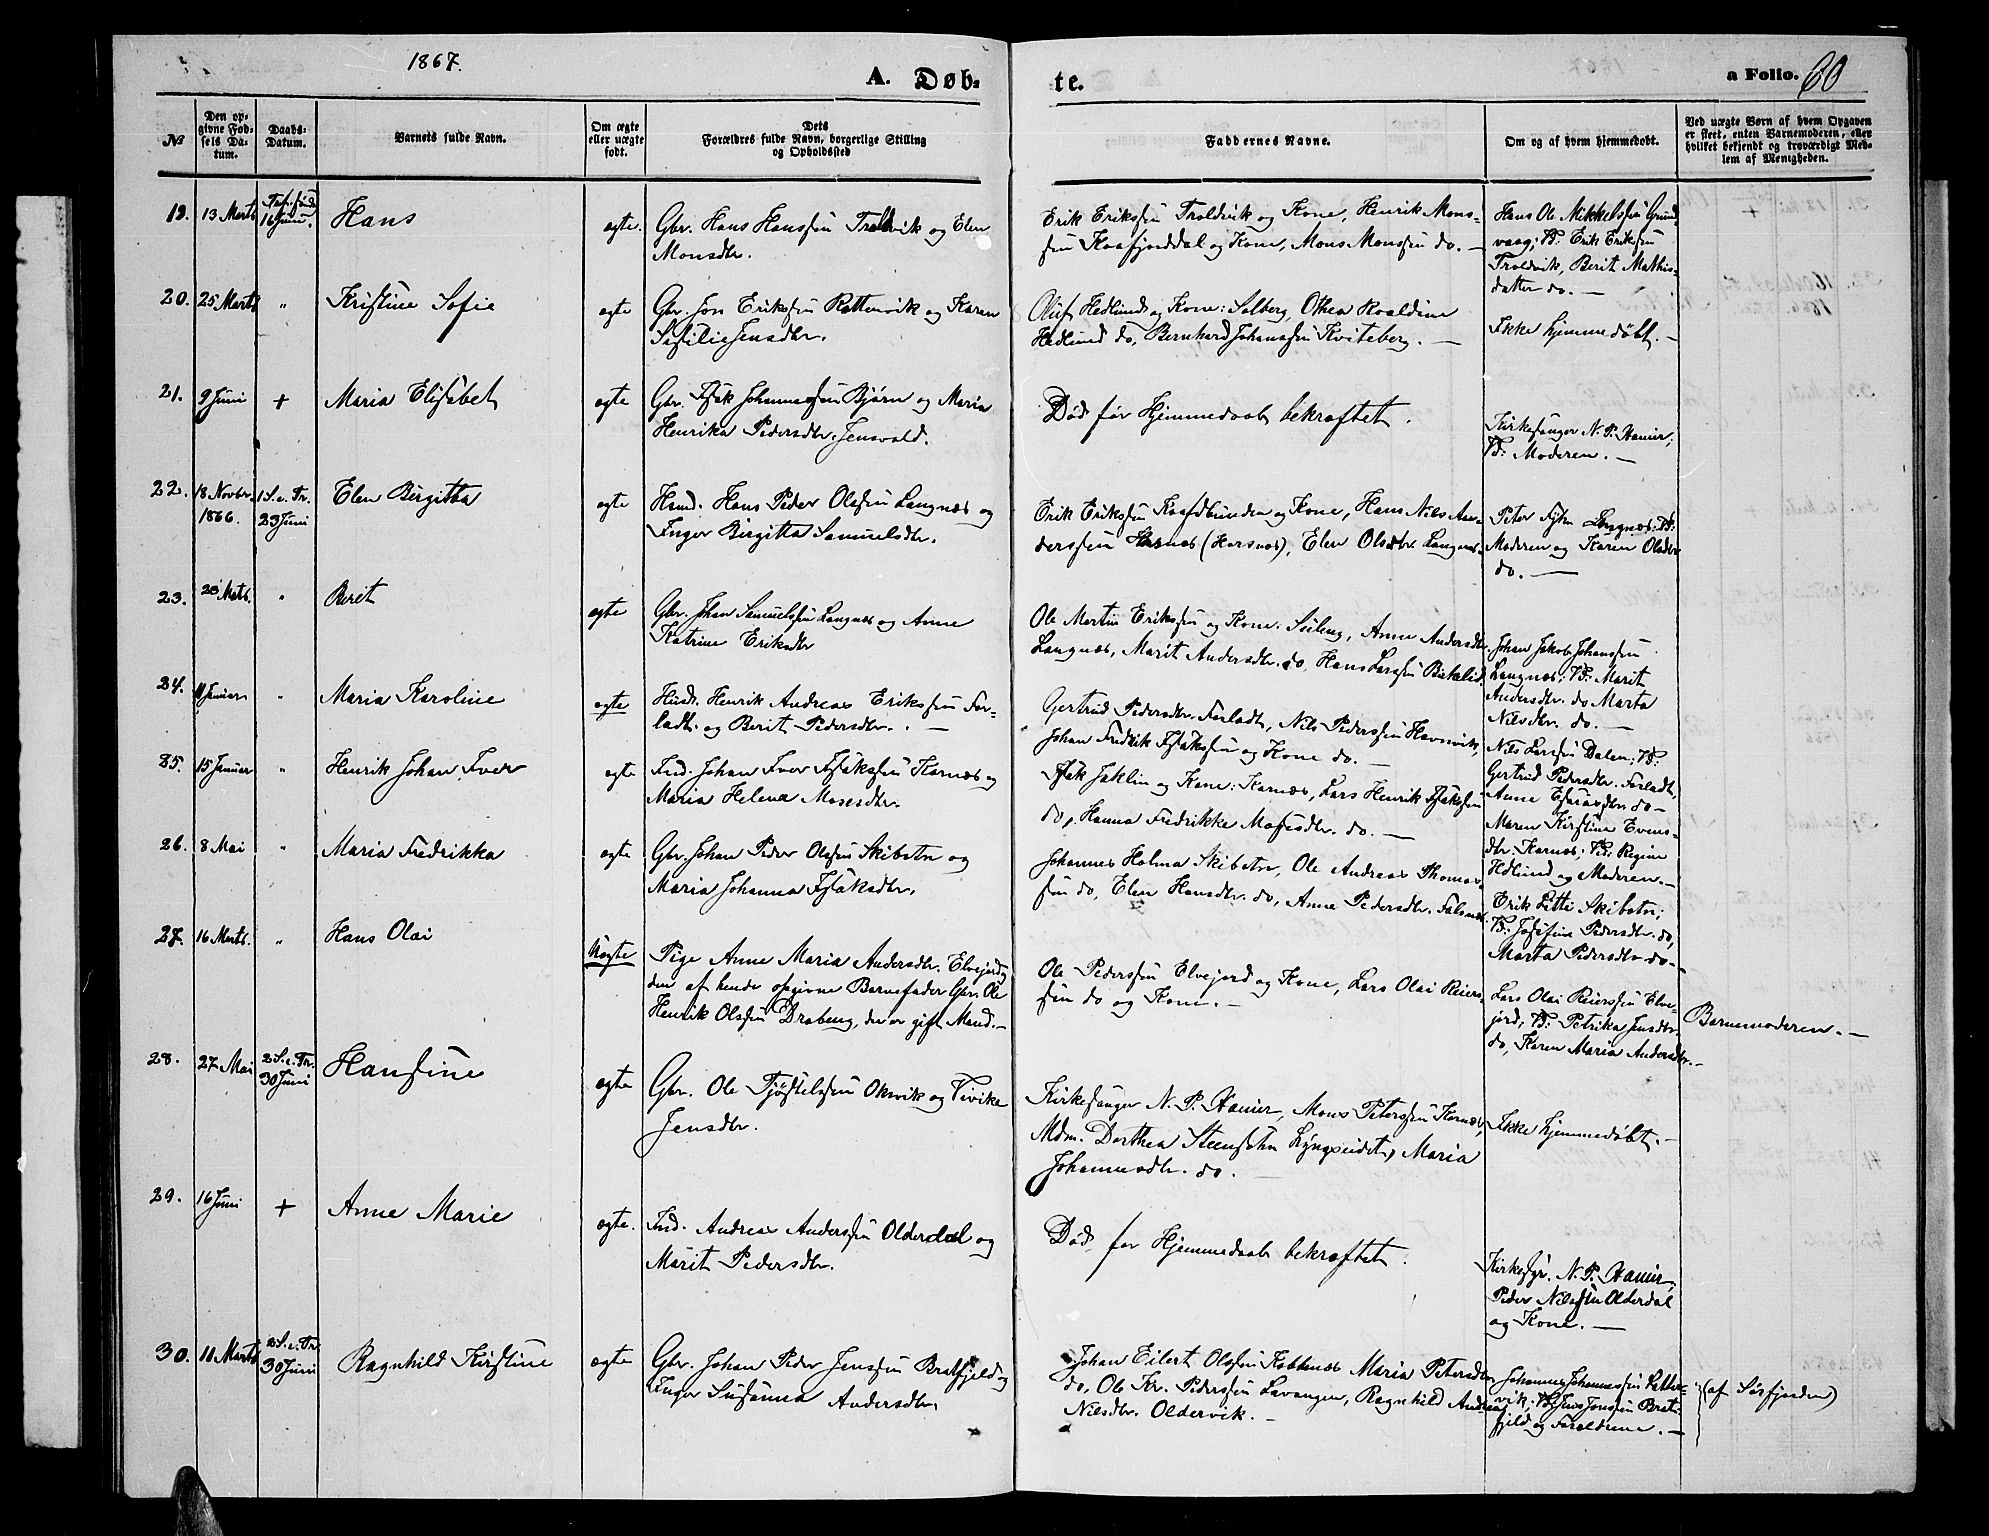 1867.
A. Døb-
te.
a Folio. 60
№
Den op-
givne Fød-
sels Da-
tum.
Daabs-
Datum.
Barnets fulde Navn.
Om ægte
eller uægte
født.
Dets
Forældres fulde Navn, borgerlige Stilling
og Opholdssted
Faddernes Navne.
Om og af hvem hjemmedøbt.
Ved uægte Børn af hvem Opgaven
er skeet, enten Barnemoderen, eller
hvilket bekjendt og troværdigt Med-
lem af Menigheden.
19. 13 Marts 16 Juni. Hans ægte. Gbr. Hans Hanssøn Troldvik og Elen
Monsdtr.
Erik Erikssøn Troldvik og Kone, Henrik Mons-
søn Kaafjorddal og Kone, Mons Monssøn do. —
Hans Ol. Mikkelssøn Grund-
vaag; Td: Erik Erikssøn
Troldvik, Berit Mathis-
datter do. —
20. 25 Marts „ Kristine Sofie ægte Gbr. Jon Erikssøn Rottenvik og Karen
Sefilie Jensdtr.
Oluf Hedlund og Kone: Solberg, Othea Kvaldine
Hedlund do, Bernhard Johanssøn Kviteberg. —
Ikke hjemmedøbt. —
21. 9 Juni + Maria Elisabet ægte Gbr. Isak Johannessøn Bjørn og Maria
Henrika Pedersdtr. Jensvold.
Død før Hjemmedaab bekræftet.
Kirkesanger N. P. Hamer;
Td: Moderen. —
22. 18 Novbr. 1866. 1 S. e. Tr. 23 Juni Elen Birgitta ægte Husmd. Hans Peder Olssøn Langnæs og
Inger Birgitta Samuelsdtr.
Erik Erikssøn Kaafdbunden og Kone, Hans Nils An-
derssøn Horsnæs (Horsnæs), Elen Olsdtr. Langnæs.
Peter Fyhn Langnæs; Td:
Moderen og Karen Olsdtr
do. —
23. 28 Marts. „ Berit ægte Gbr. Johan Samuelssøn Langnæs og Anne
Katrine Eriksdtr
Ole Martin Erikssøn og Kone: Seileng, Anne Andersdtr
Langnæs, Marit Andersdtr. do, Hans Larssøn Birkelid.
Johan Jakob Johanssøn
Langnæs; Td: Marit
Andersdtr. do Marta
Nilsdtr. do. —
24. 11 Januar „ Maria Karoline ægte Husmd. Henrik Andreas Erikssøn For-
ladt. og Berit Pedersdtr. —
Gertrud Pedersdtr. Forladt, Nils Pederssøn Havnvik,
Johan Fredrik Isakssøn og Kone do. —
Nils Larssøn Dalen; Td:
Gertrud Pedersdtr. Forladt,
Anne Esaiasdtr. do —
25. 15 Januar „ Henrik Johan Iver ægte Ind. Johan Iver Isakssøn Karnæs og
Maria Helena Mosesdtr.
Isak Jaklin og Kone: Karnæs, Lars Henrik Isakssøn
do, Hanna Fredrikke Mosesdtr. do. —
Maren Kirstine Evens-
dtr. Karnæs; Td: Regine
Hedlund og Moderen. —
26. 8 Mai „ Maria Fredrikka ægte Gbr. Johan Peder Olssøn Skibotn og
Maria Johanna Isaksdtr.
Johannes Holma Skibotn, Ole Andreas Thomas-
søn do, Elen Hansdtr. do, Anne Pedersdtr. Falsnæs.
Erik Litti Skibotn;
Td: Josefine Pedersdtr. do,
Marta Pedersdtr do. —
27. 16 Marts. „ Hans Olai Uægte Pige Anne Maria Andersdtr. Elvejord,
den af hende opgivne Barnefader Gbr. Ole
Henrik Olssøn Drabeng, der er gift Mand. —
Ole Pederssøn Elvejord og Kone, Lars Olai Reiers-
søn do og Kone. —
Lars Olai Reierssøn Elve-
jord; Td: Petrika Jensdtr
do, Karen Maria Andersdtr. —
Barnemoderen. —
28. 27 Mai 2 S. e. Tr. 30 Juni Hansine ægte Gbr. Ole Tjøstelssøn Oksvik og Vivike
Jensdtr.
Kirkesanger N. P. Hamer, Mons Peterssøn Karnæs,
Mdm. Dorthea Steensohn Lyngseidet, Maria
Johannesdtr. do.
Ikke hjemmedøbt. —
29. 16 Juni + Anne Marie ægte. Ind. Andreas Anderssøn Olderdal og
Marit Pedersdtr.
Død før Hjemmedaab bekræftet.
Kirkesgr. N. P. Hamer,
Peder Nilssøn Olderdal
og Kone. —
30. 11 Marts 2 S. e. Tr. 30 Juni Ragnhild Kirstine ægte Gbr. Johan Peder Jenssøn Bratfjeld og
Inger Susanna Andersdtr.
Johan Eilert Olssøn Kobbnæs Maria Petersdtr
do, Ole Kr. Pederssøn Lavangen, Ragnhild Andrea
Nilsdtr. Oldervik. —
Johannes Johannessøn Latter-
vik; Td: Jens Jonssøn Brat-
fjeld og Forældrene. —
(af Sørfjorden)